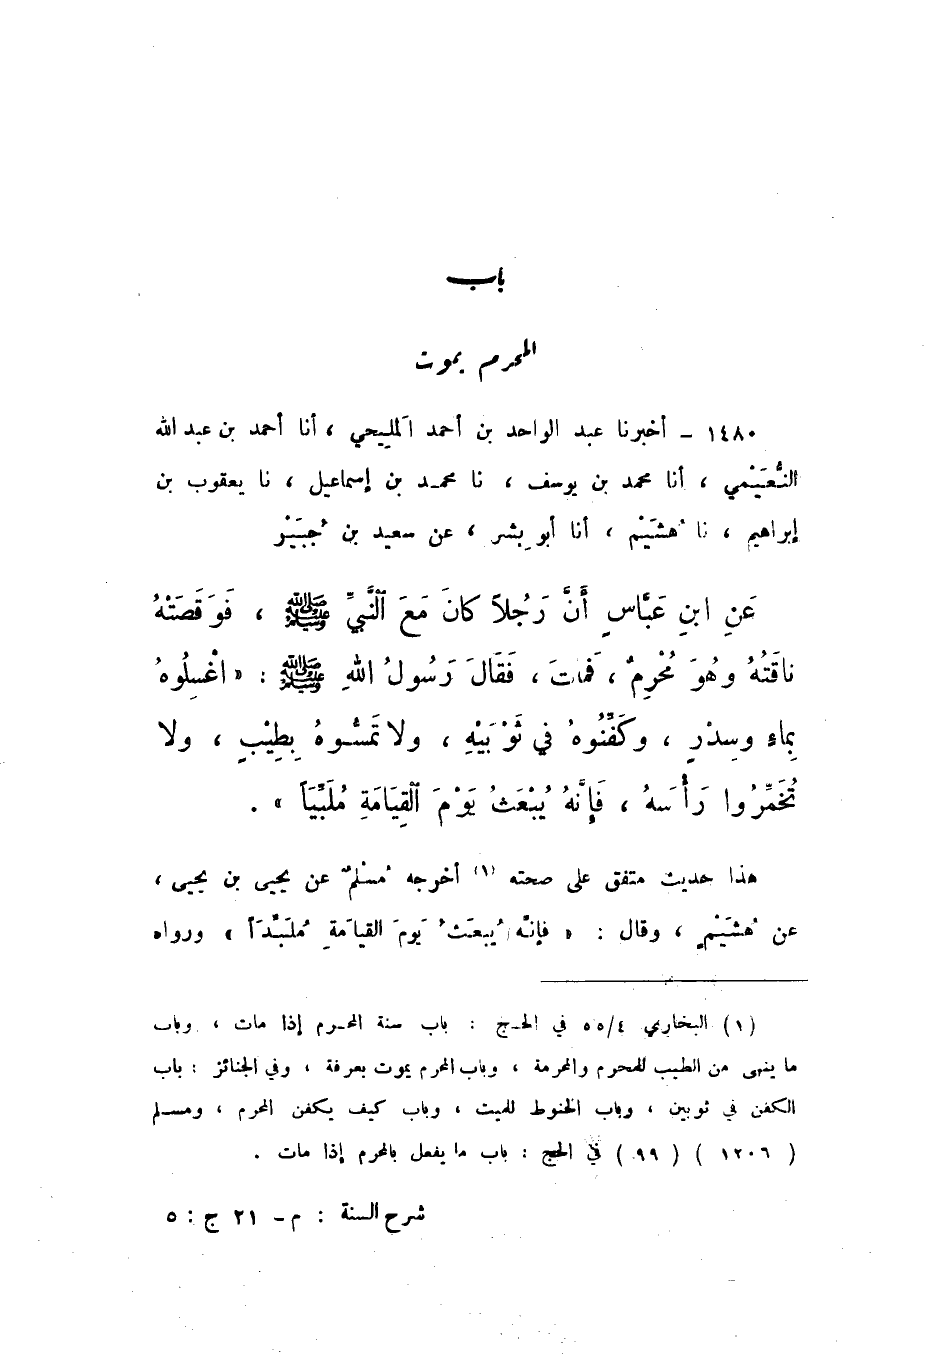 باب
المحرم يموت
١٤٨٠ - أخبرنا عبد الواحد بن أحمد المليحي ، أنا أحمد بن عبد الله
النُّعَيْمي ، أنا محمد بن يوسف ، نا محمد بن إسماعيل ، نا يعقوب بن
إبراهيم ، نا هُشَيْم ، أنا أبو بِشر ، عن سعيد بن جُبَيْر
عَنِ ابنِ عَبَّاسٍ أَنَّ رَجُلاً كانَ مَعَ ٱلنَّبِيِّ ﷺ ، فَوَقَصَتْهُ
ناقَتُهُ وهُوَ مُحْرِمٌ ، فَماتَ ، فَقَالَ رَسُولُ اللهِ ﷺ : « اغْسِلُوهُ
بِماءٍ وسِدْرٍ ، وكَفِّنُوهُ في ثَوْبَيْهِ ، ولا تَمَسُّوهُ بِطِيْبٍ ، ولا
تُخَمِّرُوا رَأْسَهُ ، فَإِنَّهُ يُبْعَثُ يَوْمَ ٱلقِيَامَةِ مُلَبِّيَاً » .
هذا حديث متفق على صحته (١) أخرجه مُسْلمٌ عن يحيى بن يحيى ،
عن هُشَيْمٍ ، وقال : « فإنَّه يُبعَثُ يَومَ القيامَةِ مُلَبِّدَاً » ورواه
(١) البخاري ٥٥/٤ في الحج : باب سنة المحرم إذا مات ، وباب
ما ينهى من الطيب للمحرم والمحرمة ، وباب المحرم يموت بعرفة ، وفي الجنائز : باب
الكفن في ثوبين ، وباب الحنوط للميت ، وباب كيف يكفن المحرم ، ومسلم
( ١٢٠٦ ) ( ٩٩ ) في الحج : باب ما يفعل بالمحرم إذا مات .
شرح السنة : م - ٢١ ج : ٥